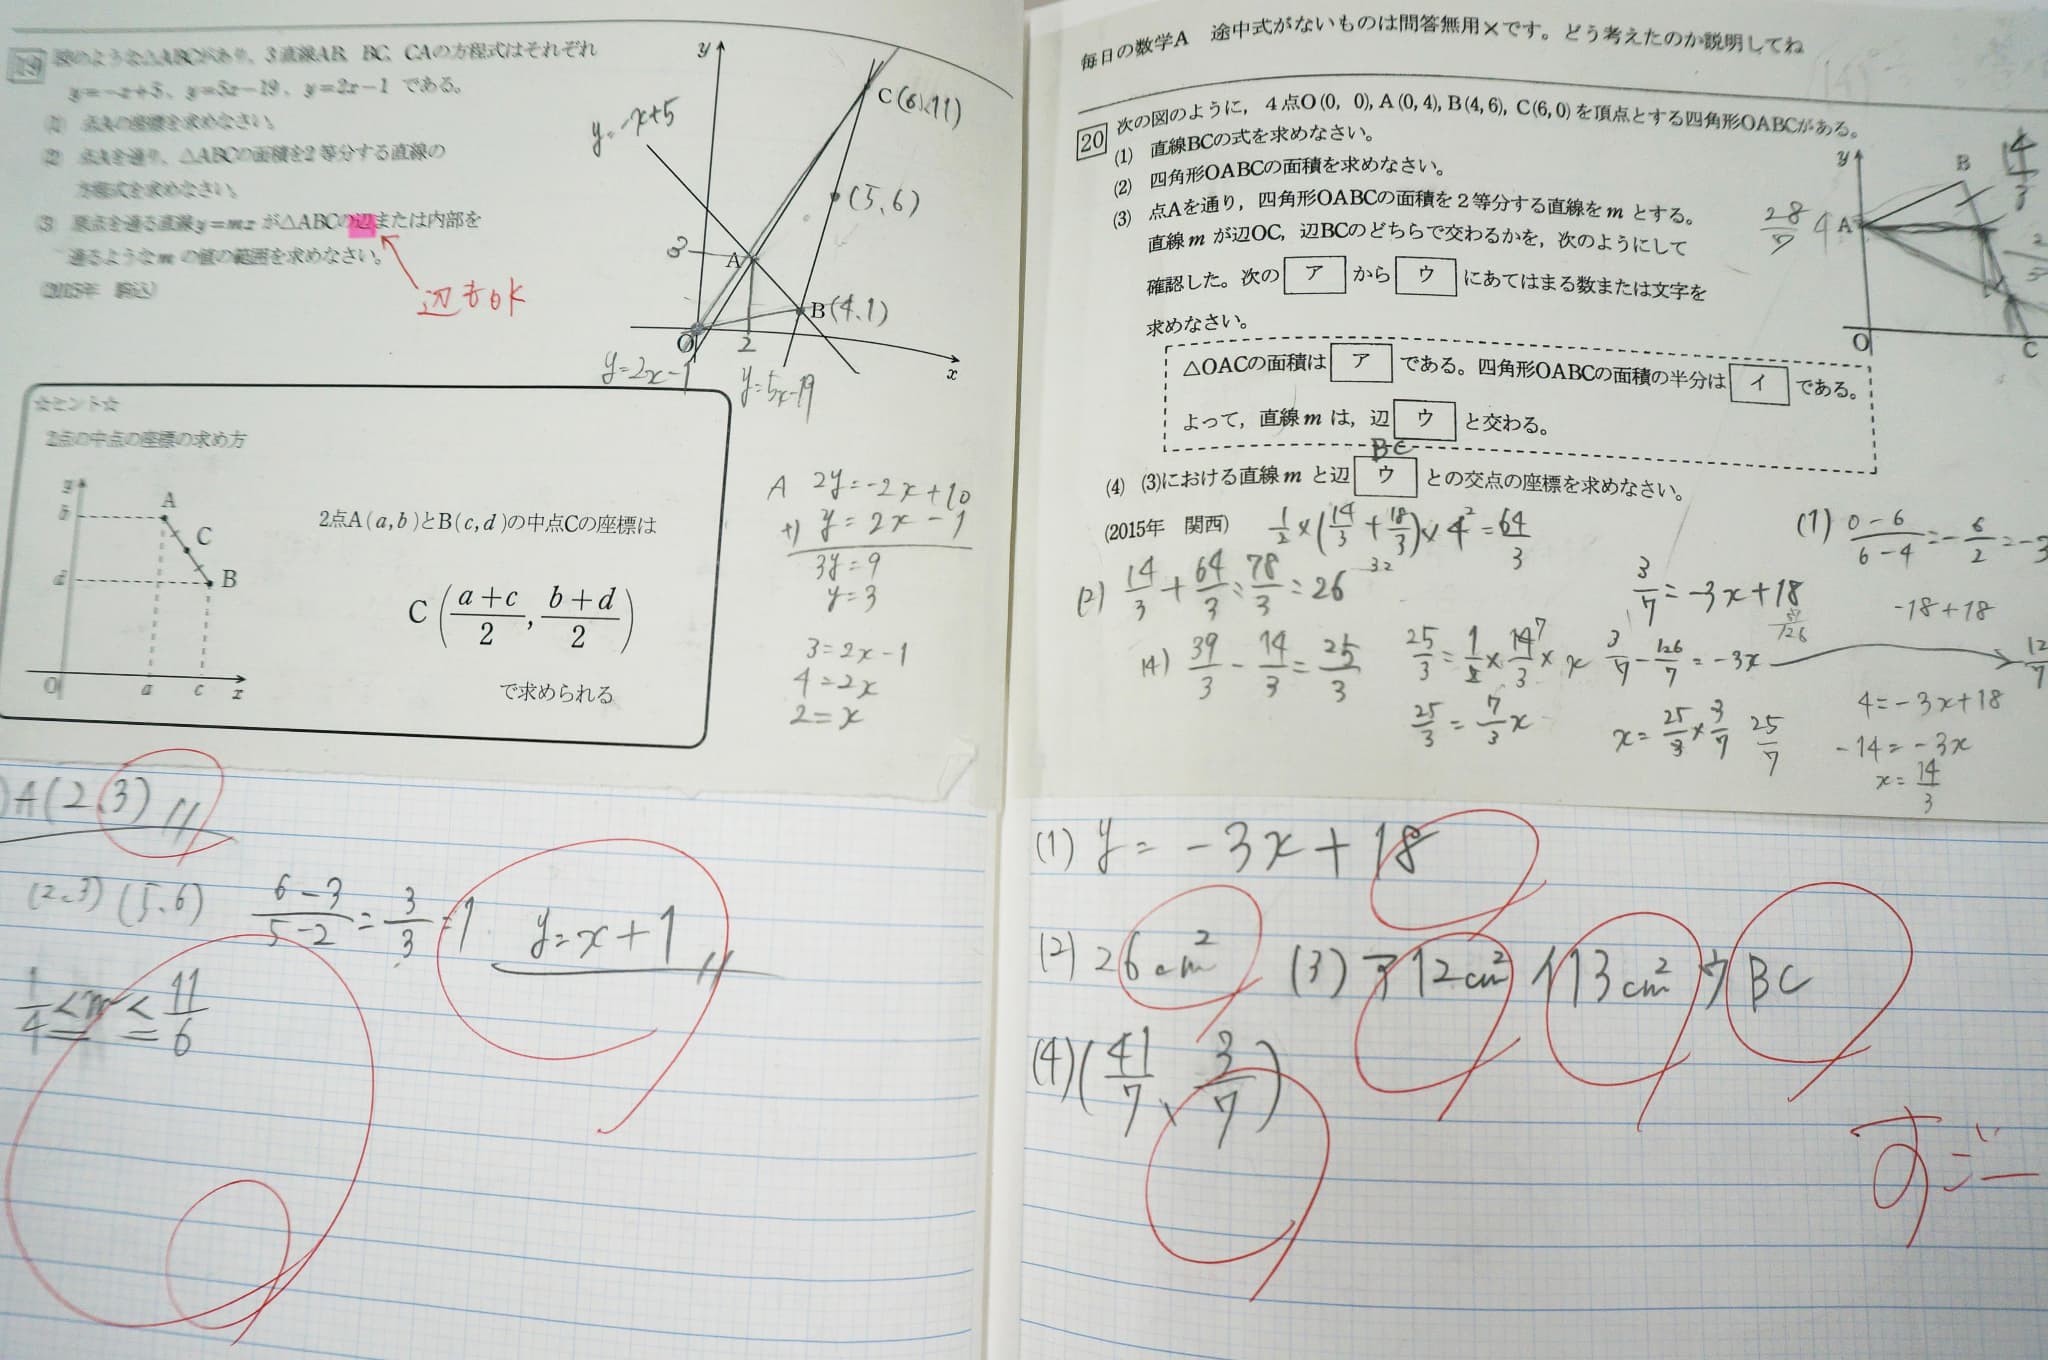 19 図のような△ABCがあり、3直線AB、BC、CAの方程式はそれぞれ
y=-x+5、y=5x-19、y=2x-1 である。
(1) 点Aの座標を求めなさい。
(2) 点Aを通り、△ABCの面積を2等分する直線の
方程式を求めなさい。
(3) 原点を通る直線y=mxが△ABCの辺または内部を
通るようなmの値の範囲を求めなさい。
(2015年 駒込)
辺もok
y
y=-x+5
C(6,11)
(5、6)
3
A
B(4,1)
O
2
x
y=2x-1
y=5x-19
☆ヒント☆
2点の中点の座標の求め方
y
b
A
C
d
B
O a c x
2点A(a,b)とB(c,d)の中点Cの座標は
C(a+c/2, b+d/2)
で求められる
A 2y=-2x+10
+) y=2x-1
3y=9
y=3
3=2x-1
4=2x
2=x
)A(2、3)
(2、3) (5、6) 6-3/5-2=3/3=1 y=x+1
1/4≦m≦11/6
毎日の数学A 途中式がないものは問答無用×です。どう考えたのか説明してね
20 次の図のように，4点O(0, 0), A(0,4), B(4,6), C(6,0)を頂点とする四角形OABCがある。
(1) 直線BCの式を求めなさい。
(2) 四角形OABCの面積を求めなさい。
(3) 点Aを通り，四角形OABCの面積を2等分する直線をmとする。
直線mが辺OC, 辺BCのどちらで交わるかを，次のようにして
確認した。次の ア から ウ にあてはまる数または文字を
求めなさい。
△OACの面積は ア である。四角形OABCの面積の半分は イ である。
よって，直線mは，辺 ウ と交わる。
BC
(4) (3)における直線mと辺 ウ との交点の座標を求めなさい。
(2015年 関西)
y
B
28/7
4
A
O
C
1/2×(14/3+18/3)×4²=64/3
32
(2) 14/3+64/3=78/3=26
(4) 39/3-14/3=25/3
25/3=1/2×14/3×x
7
25/3=7/3x
x=25/3×3/7 25/7
3/7=-3x+18
3/7-126/7=-3x
(1) 0-6/6-4=-6/2=-3
-18+18
4=-3x+18
-14=-3x
x=14/3
(1) y=-3x+18
(2) 26cm² (3) ア12cm² イ13cm² ウBC
(4)(41/7、3/7)
すごー